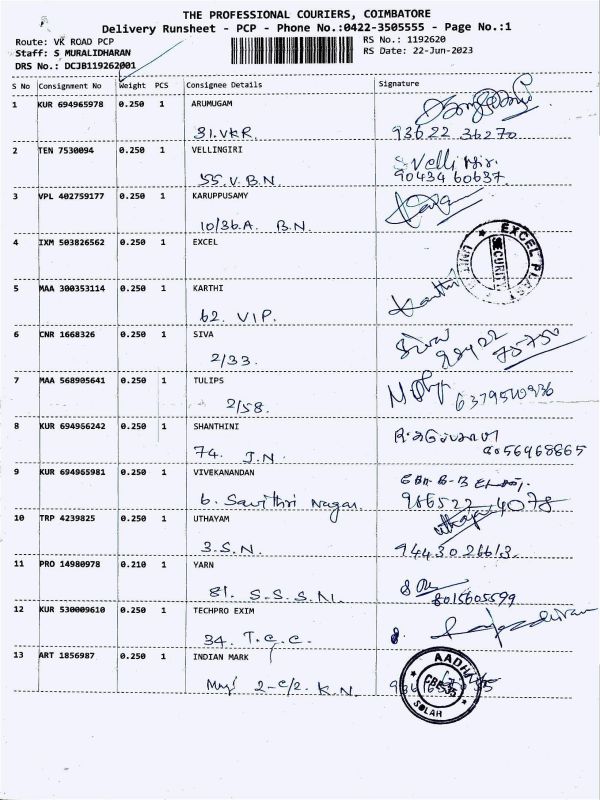 THE PROFESSIONAL COURIERS, COIMBATORE
Delivery Runsheet - PCP - Phone No.:0422-3505555 - Page No.:1
Route: VK ROAD PCP RS No.: 1192620
Staff: S MURALIDHARAN RS Date: 22-Jun-2023
DRS No.: DCJB119262001
S No Consignment No Weight PCS Consignee Details Signature
1 KUR 694965978 0.250 1 ARUMUGAM
31. VKR. 93622 36270
2 TEN 7530094 0.250 1 VELLINGIRI
55. V. B. N. 90434 60637.
3 VPL 402759177 0.250 1 KARUPPUSAMY
10/36.A. B.N.
4 IXM 503826562 0.250 1 EXCEL
EXCEL PLAST SECURITY UNIT
5 MAA 300353114 0.250 1 KARTHI
62. VIP. Karthi
6 CNR 1668326 0.250 1 SIVA
2/33. 98422 75750
7 MAA 568905641 0.250 1 TULIPS
2/58.
8 KUR 694966242 0.250 1 SHANTHINI
74. J.N. 8056968865
9 KUR 694965981 0.250 1 VIVEKANANDAN
6. Savithri Nagar. 986522 4078
10 TRP 4239825 0.250 1 UTHAYAM
3. S.N. 9443026613
11 PRO 14980978 0.210 1 YARN
81. S.S.S.N. 8015605599
12 KUR 530009610 0.250 1 TECHPRO EXIM
34. T.C.C.
13 ART 1856987 0.250 1 INDIAN MARK
2-C/2. K.N.
AADHI CBE-35 SOLAR